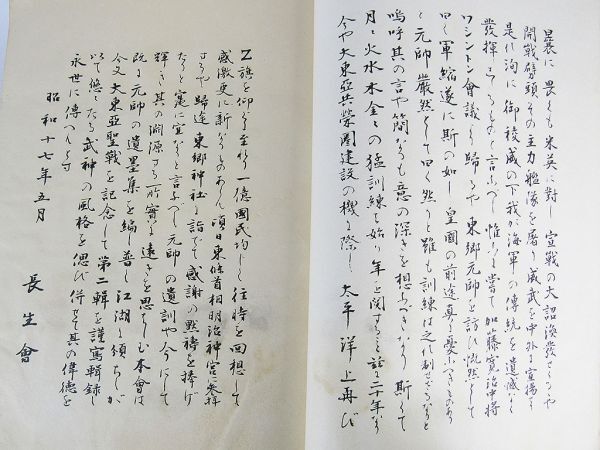 曩に畏くも米英に對し宣戰の大詔渙發せらるゝや
開戰劈頭その主力艦隊を屠り威武を中外に宣揚す
是れ洵に御稜威の下我が海軍の傳統を遺憾なく
發揮したるものと言ふべし惟ふに嘗て加藤寛治中將
ワシントン會議より歸るや東郷元帥を訪ひ慨然として
曰く軍縮遂に斯の如し皇國の前途眞に憂ふべきものあり
と元帥嚴然として曰く然りと雖も訓練には制限なからむと
嗚呼其の言や簡なるも意の深きを想ふべきなり斯くて
月月火水木金金の猛訓練を始め年を閲すること茲に二十年なり
今や大東亞共榮圏建設の機に際し太平洋上再び
Z旗を仰ぎ至り一億國民均しく往時を回想して
感激更に新なるものあり頃日東條首相明治神宮に參拜
するや歸途東郷神社に詣でて感謝の默禱を捧げ
たりと寔に宜なりと言ふべし元帥の遺訓や今にして
輝しき其の淵源する所實に遠きを思はしむ本會は
既に元帥の遺墨集を編し普く江湖に頒ちしが
今又大東亞聖戰を記念して第二輯を謹寫輯錄し
以て悠々たる武神の風格を偲び併せて其の偉德を
永世に傳へんとす
昭和十七年五月
長生會